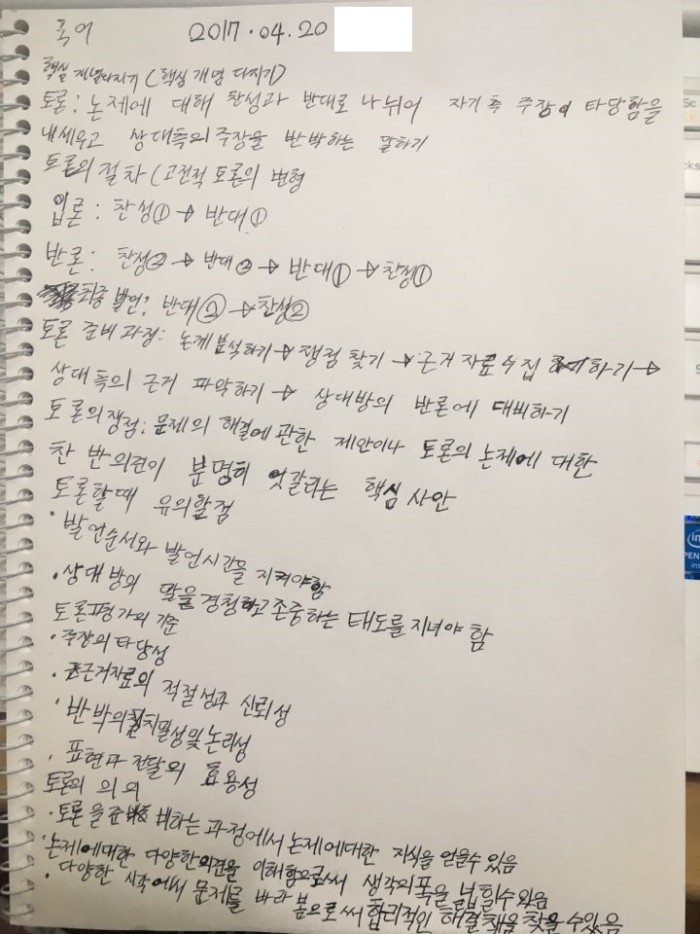 국어 2017.04.20
핵심 개념다지기 (핵심 개념 다지기)
토론: 논제에 대해 찬성과 반대로 나뉘어 자기 측 주장의 타당함을
내세우고 상대측의 주장을 반박하는 말하기
토론의 절차 (고전적 토론의 변형
입론: 찬성① → 반대①
반론: 찬성② → 반대② → 반대① → 찬성①
최종 발언: 반대② → 찬성②
토론 준비 과정: 논제 분석하기 → 쟁점 찾기 → 근거 자료 수집 하기 →
상대 측의 근거 파악하기 → 상대방의 반론에 대비하기
토론의 쟁점: 문제의 해결에 관한 제안이나 토론의 논제에 대한
찬 반 의견이 분명히 엇갈리는 핵심 사안
토론할때 유의할점
· 발언순서와 발언시간을 지켜야함
· 상대 방의 말을 경청하고 존중하는 태도를 지녀야 함
토론평가의 기준
· 주장의 타당성
· 근거자료의 적절성과 신뢰성
· 반박의 치밀성및논리성
· 표현과 전달의 효용성
토론의 의의
· 토론을준비하는 과정에서 논제에대한 지식을 얻을수 있음
· 논제에대한 다양한의견을 이해함으로써 생각의폭을 넓힐수있음
· 다양한 시각에서 문제를 바라 봄으로써 합리적인 해결책을 찾을 수있음
Sc
PEN
ins